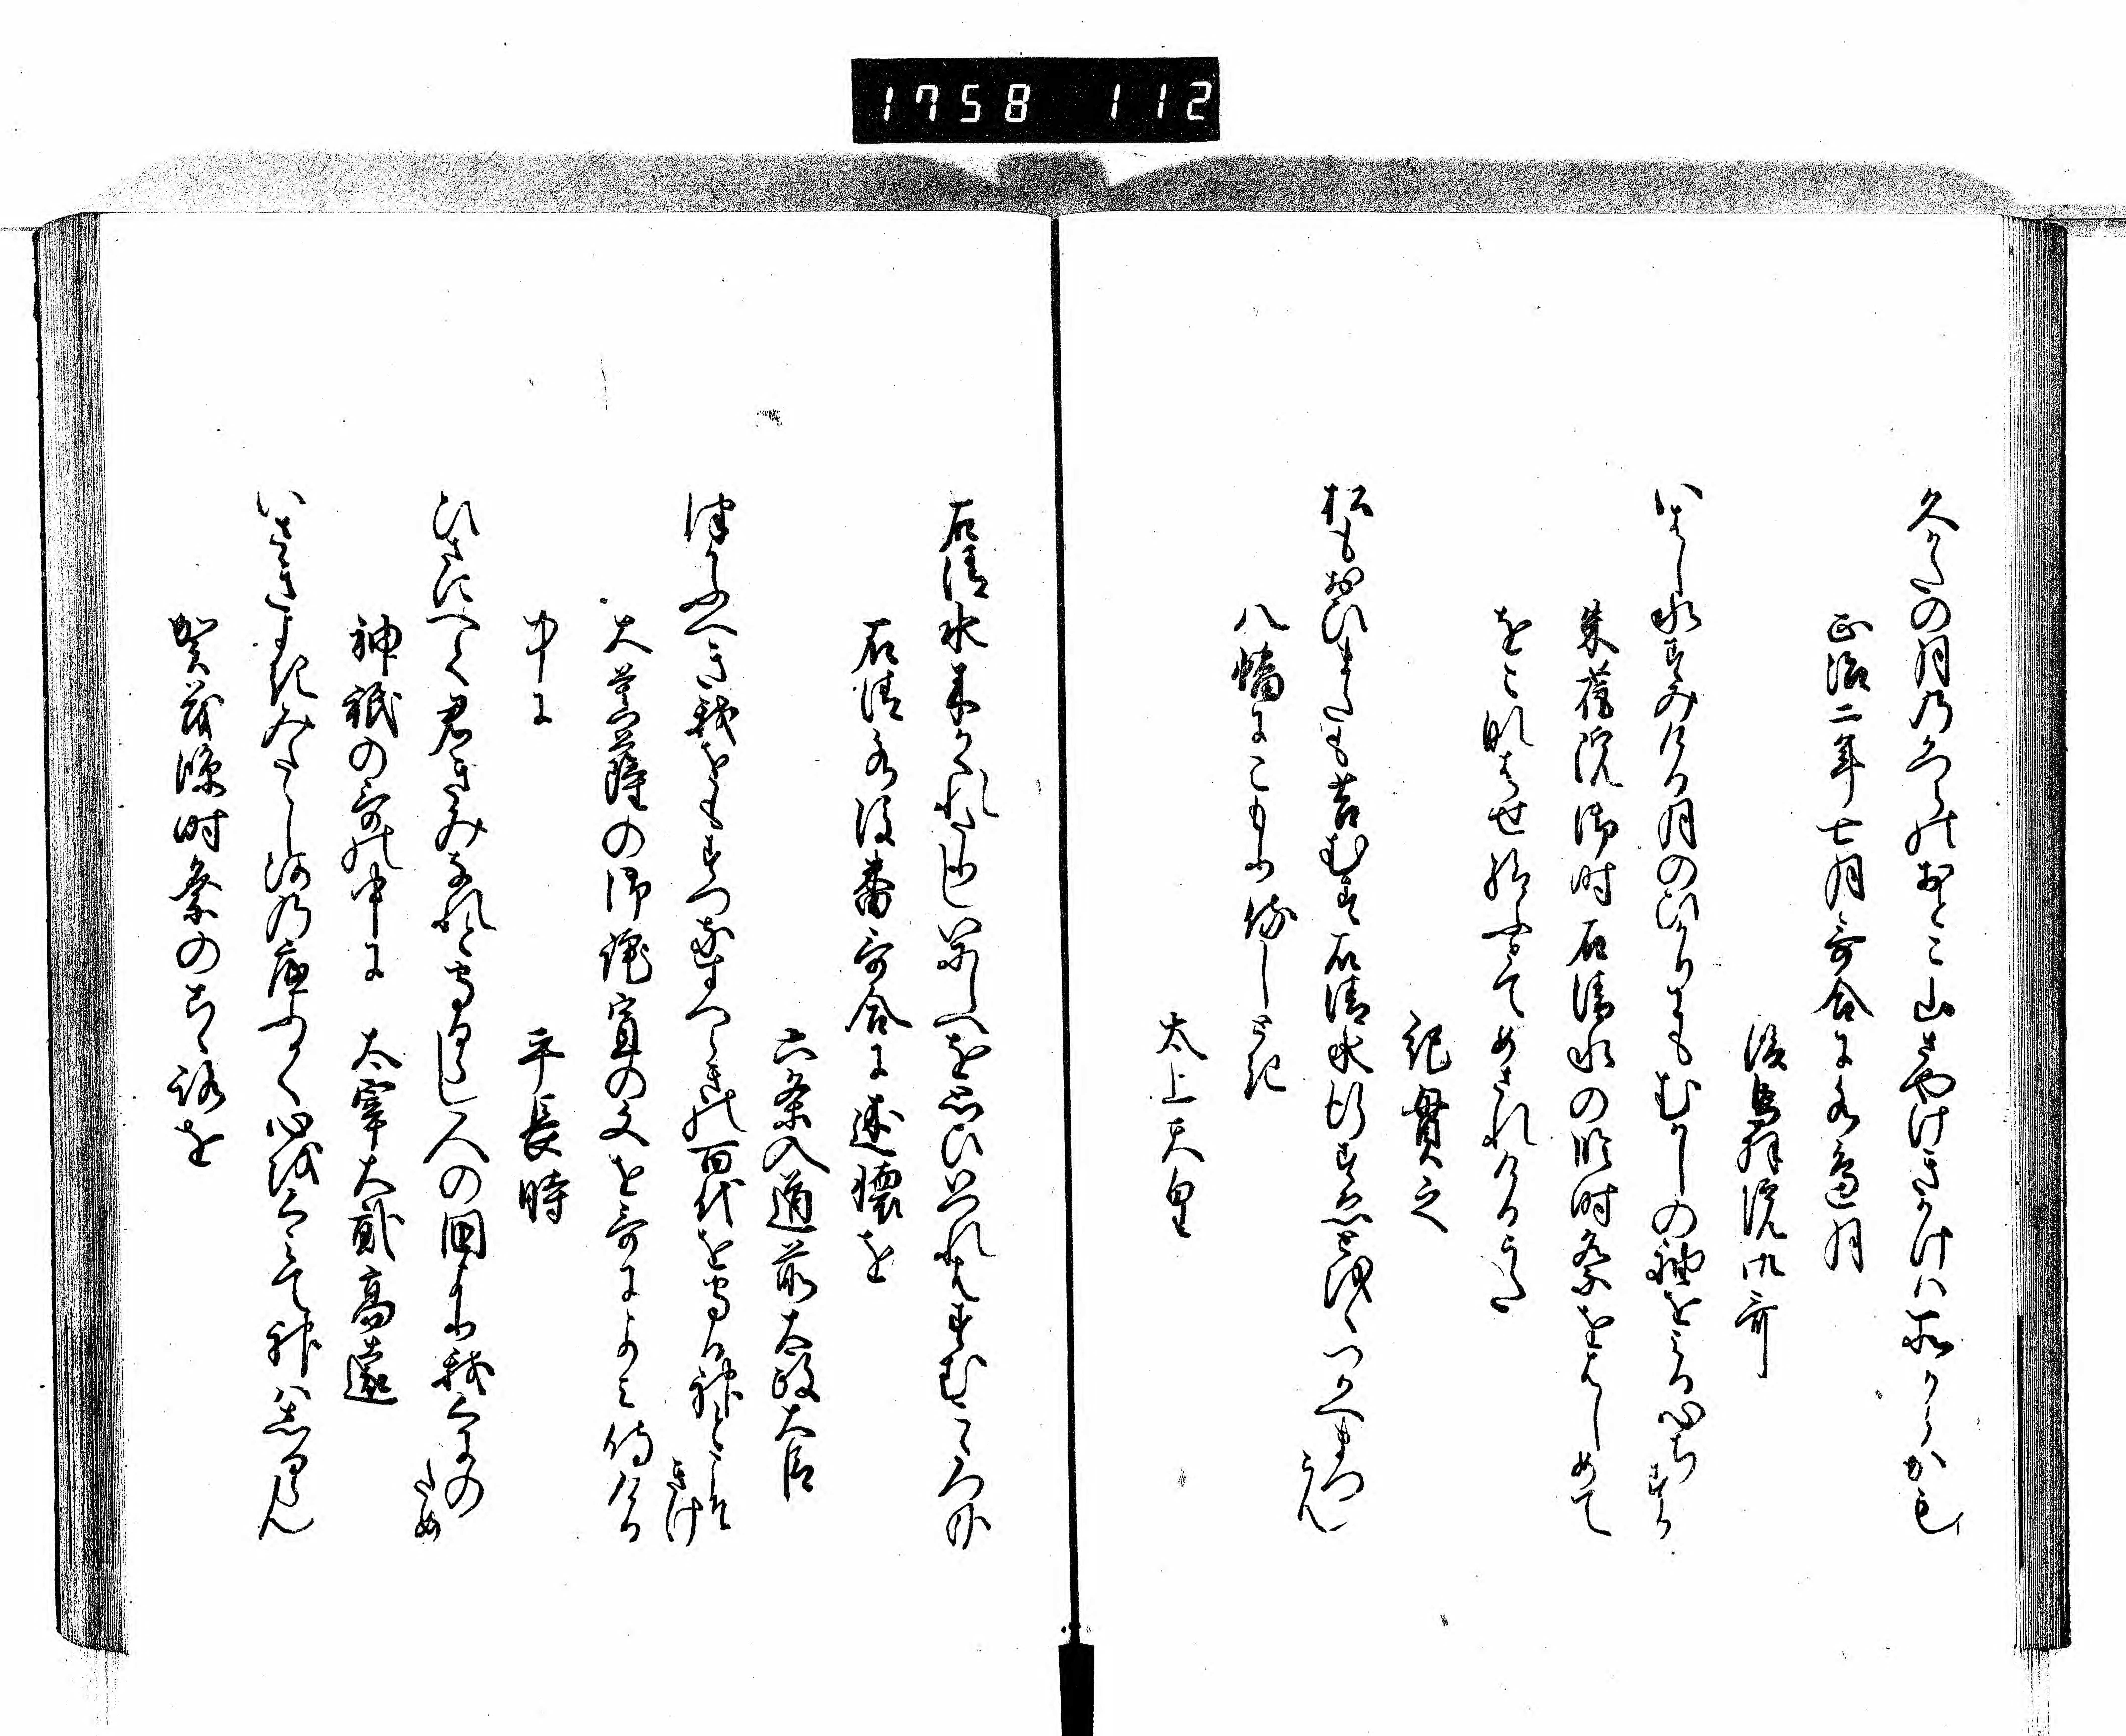 1758 112
久かたの月乃かつらのおとこ山さやけきかけは所からかも
正治二年七月哥合に水辺月
後鳥羽院御哥
いはし水すみける月のひかりにもむかしの袖をみる心ちする
朱雀院御時石清水の臨時祭をはしめて
をこなはせ給ふとてめされけるうた
紀貫之
松もおひまたも苔むす石清水行すゑとをくつかへまつらん
八幡にこもり侍しとき
太上天皇
石清水なかれ
石清水後番哥合に述懐を
六条入道前太政大臣
つかふへき我をもすつなすへらきの百代を守る神ときけ
大菩薩の御託宣の文を哥によみ侍ける
中に
平長時
ひさにへて君きみなれと守るらし人の国より我くにのため
神祇の哥の中に 太宰大貳高遠
いさきよきみたらし河の底ふかく心をくみて神は志るらん
賀茂臨時祭のこゝろを